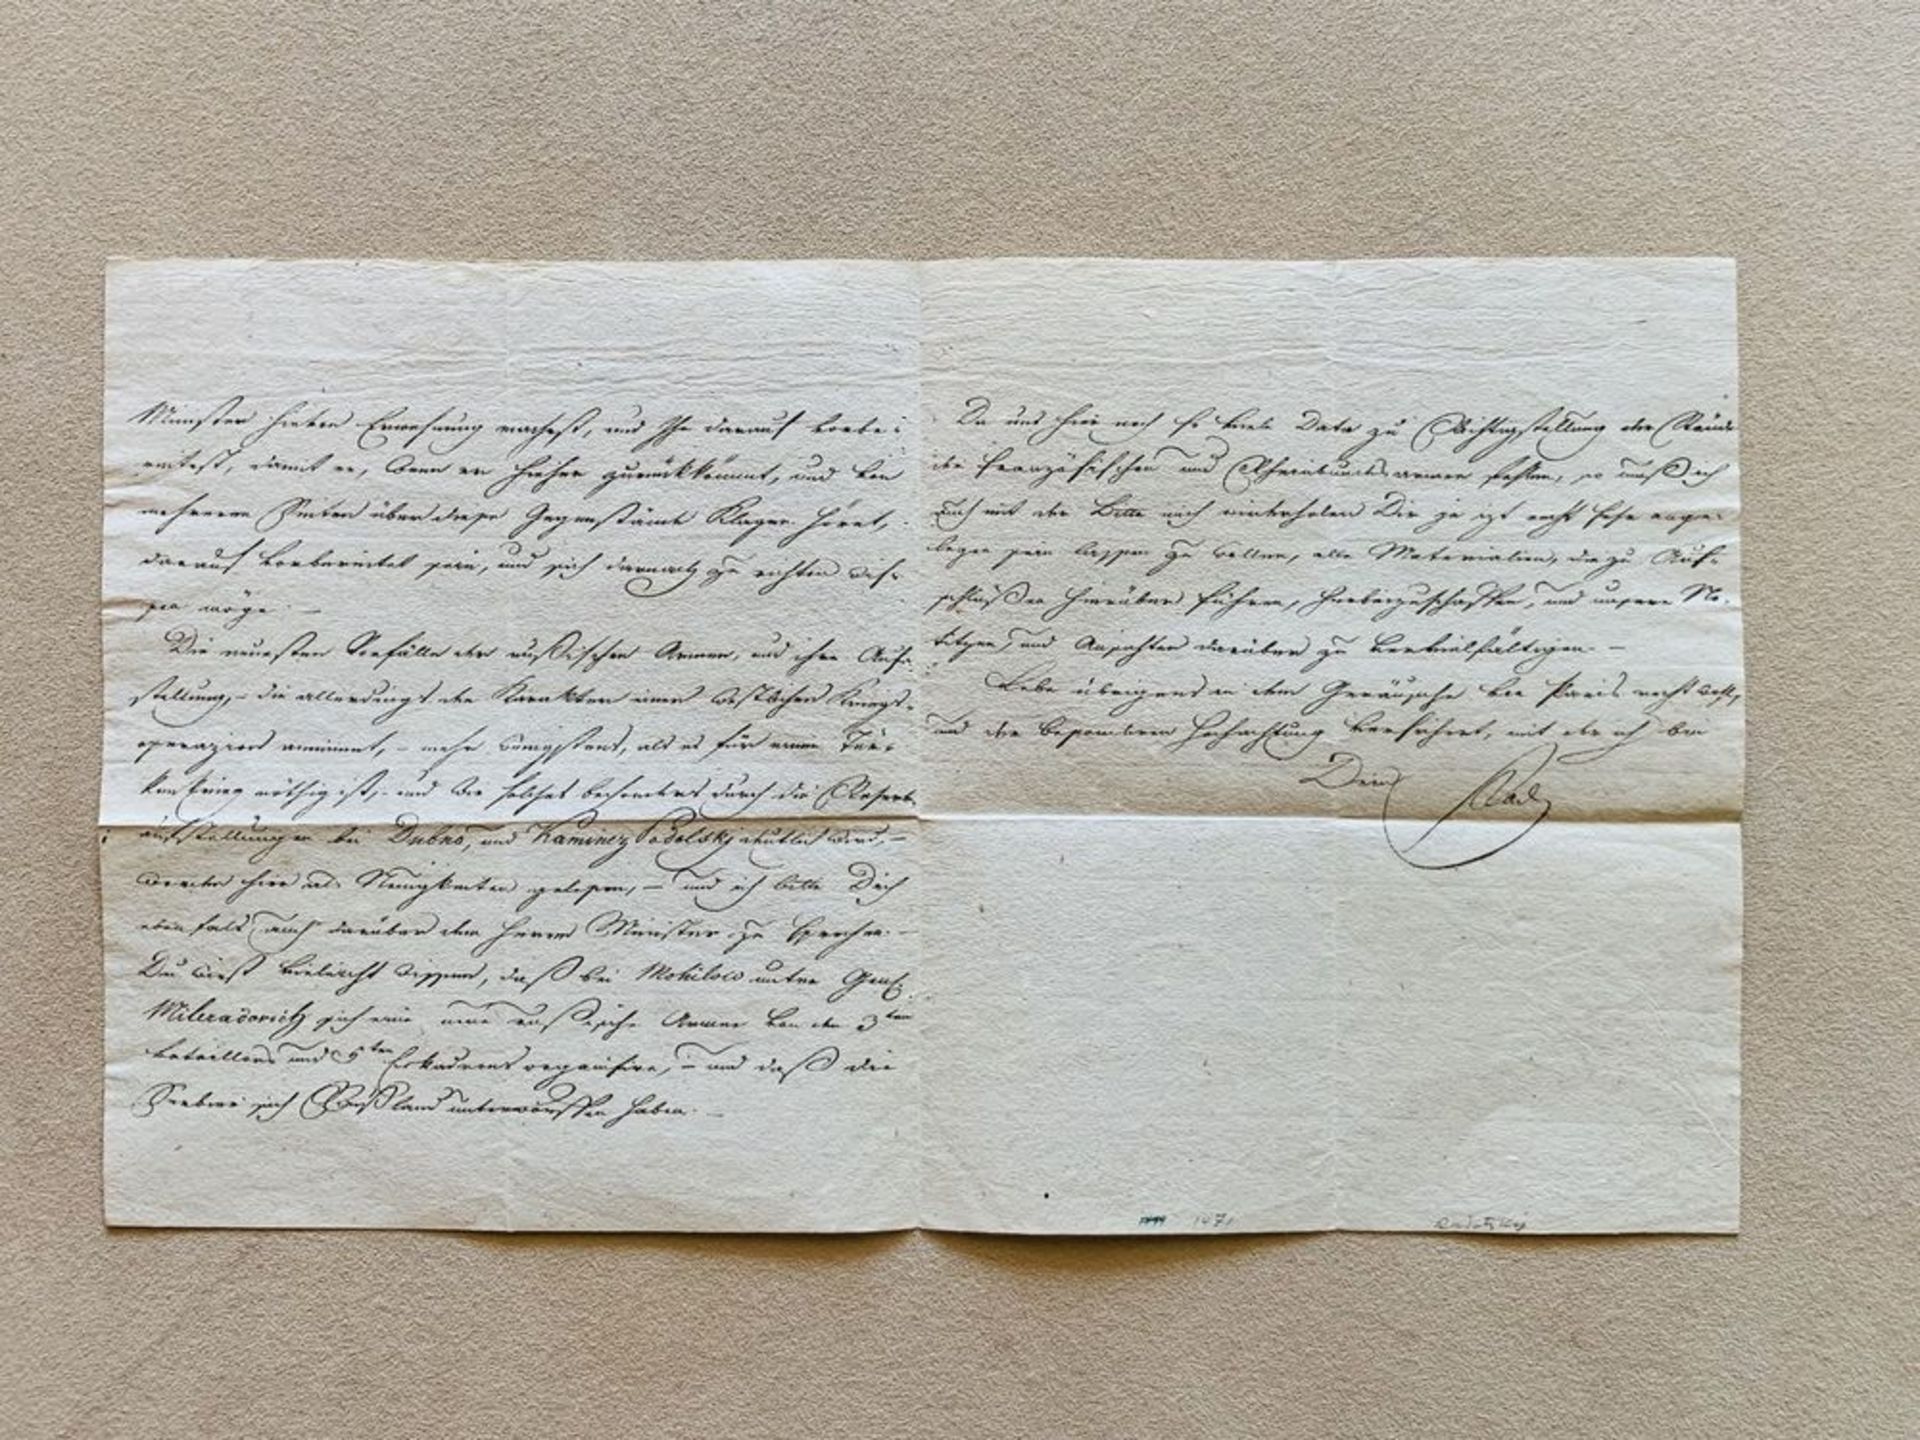 Minister hievon Erwehnung machest, und Ihn darauf vorbe-
reitest, damit er, wenn er hieher zurückkömmt, und von
mehreren Seiten über diese Gegenstände Klagen höret,
darauf vorbereitet sein, und sich darnach zu richten wis-
sen möge. –
Die neuesten Vorfälle der rußischen Armee, und ihre Auf-
stellung, – die allerdings den Karakter einer westlichen Kriegs-
operazion annimmt, – mehr wenigstens, als es für einen Tür-
ken Krieg nöthig ist, – und die solches besonders durch die Reserve
aufstellungen bei Dubno, und Kaminez Podolsky deutlich wird, –
werden hier als Neuigkeiten gelesen, – und ich bitte Dich
ebenfals auch darüber dem Herrn Minister zu sprechen. –
Du wirst vieleicht wissen, daß bei Mohilow unter Genl:
Miloradovich sich eine neue rußische Armee von den 3ten
Bataillons und 5ten Eskadrons organisire, – und daß die
Servier sich Rußland unterworffen haben. –
Da uns hier noch so viele Data zu Richtigstellung der Stände
der französischen und Rheinbunds armeen fehlen, so muß ich
auch mit der Bitte mich wiederholen Dir ja izt recht sehr ange-
legen sein lassen zu wollen, alle Materialien, die zu Auf-
schlüßen hierüber führen, herbeizuschaffen, und unsere No-
titzen, und Ansichten darüber zu vervielfältigen. –
Lebe übrigens in dem Geräusche von Paris recht wohl,
und der besonderen Hochachtung versichert, mit der ich bin
Dein Rad
1471
Radetzky